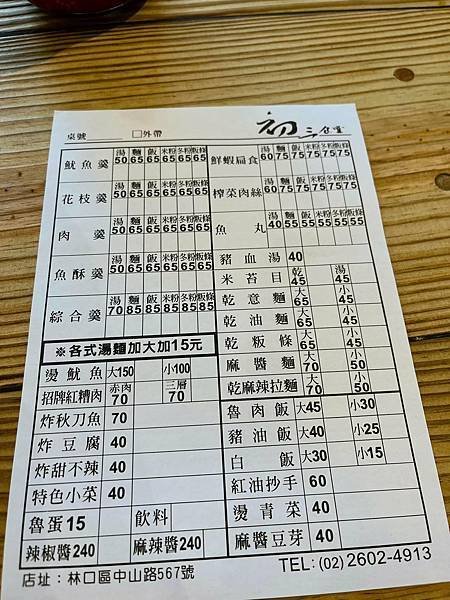 桌號 □外帶 初三食堂
魷魚羹 湯50 麵65 飯65 米粉65 冬粉65 粄條65
花枝羹 湯50 麵65 飯65 米粉65 冬粉65 粄條65
肉羹 湯50 麵65 飯65 米粉65 冬粉65 粄條65
魚酥羹 湯50 麵65 飯65 米粉65 冬粉65 粄條65
綜合羹 湯70 麵85 飯85 米粉85 冬粉85 粄條85
※各式湯麵加大加15元
燙魷魚 大150 小100
招牌紅糟肉 赤肉70 三層70
炸秋刀魚 70
炸豆腐 40
炸甜不辣 40
特色小菜 40
魯蛋15 飲料
辣椒醬240 麻辣醬240
鮮蝦扁食 湯60 麵75 飯75 米粉75 冬粉75 粄條75
榨菜肉絲 湯60 麵75 飯75 米粉75 冬粉75 粄條75
魚丸 湯40 麵55 飯55 米粉55 冬粉55 粄條55
豬血湯 40
米苔目 乾45 湯45
乾意麵 大65 小45
乾油麵 大65 小45
乾粄條 大65 小45
麻醬麵 大70 小50
乾麻辣拉麵 大70 小50
魯肉飯 大45 小30
豬油飯 大40 小25
白飯 大30 小15
紅油抄手 60
燙青菜 40
麻醬豆芽 40
店址：林口區中山路567號 TEL:(02)2602-4913